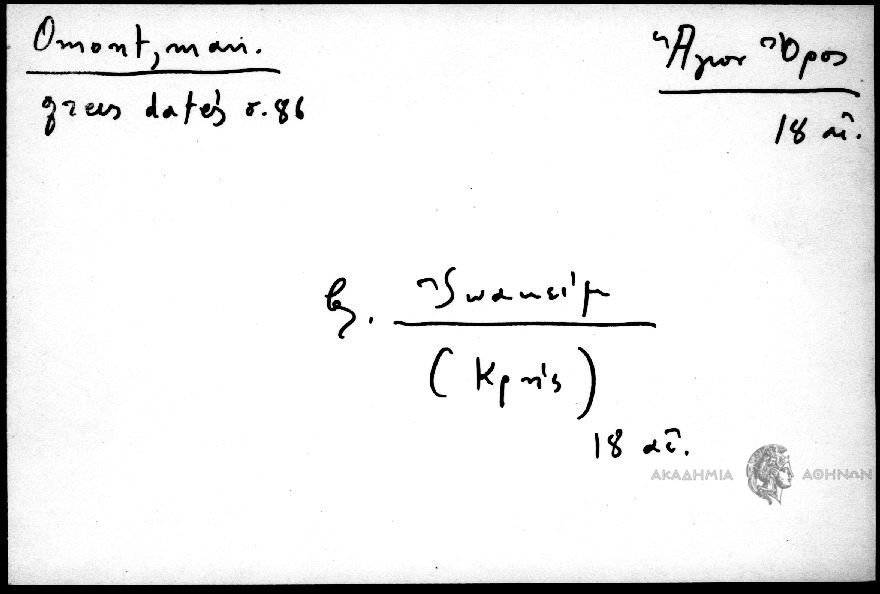 Omont, man.
grecs datés σ. 86
Ἅγιον Ὄρος
18 αἰ.
βλ. Ἰωακείμ
(Κρής)
18 αἰ.
ΑΚΑΔΗΜΙΑ ΑΘΗΝΩΝ